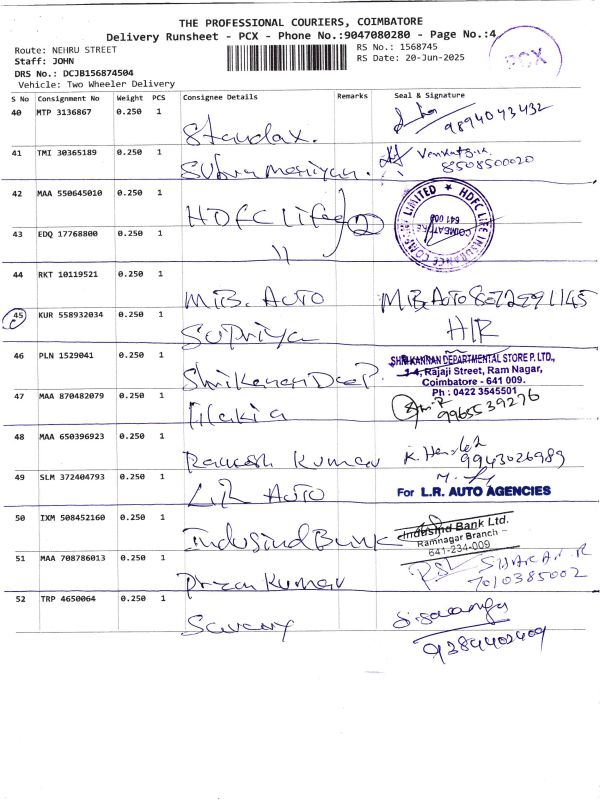 THE PROFESSIONAL COURIERS, COIMBATORE
Delivery Runsheet - PCX - Phone No.:9047080280 - Page No.:4
PCX
Route: NEHRU STREET
RS No.: 1568745
Staff: JOHN
RS Date: 20-Jun-2025
DRS No.: DCJB156874504
Vehicle: Two Wheeler Delivery
S No Consignment No Weight PCS Consignee Details Remarks Seal & Signature
40 MTP 3136867 0.250 1
9894043432
41 TMI 30365189 0.250 1
8508500020
42 MAA 550645010 0.250 1 HDFC Life 2
HDFC LIFE INSURANCE COMPANY LIMITED
COIMBATORE
43 EDQ 17768800 0.250 1 11
44 RKT 10119521 0.250 1 MiB. AUTO
45 KUR 558932034 0.250 1 Supriya
H/R
46 PLN 1529041 0.250 1 Shri Kanan Dep.
SHRI KANNAN DEPARTMENTAL STORE P. LTD.,
1-4, Rajaji Street, Ram Nagar,
Coimbatore - 641 009.
Ph : 0422 3545501
47 MAA 870482079 0.250 1
9965539276
48 MAA 650396923 0.250 1 Ramesh Kumar
9943026989
49 SLM 372404793 0.250 1 L.R AUTO
For L.R. AUTO AGENCIES
50 IXM 508452160 0.250 1 Indusind Bank
Indusind Bank Ltd.
Ramnagar Branch
641-234-009
51 MAA 708786013 0.250 1
7010385002
52 TRP 4650064 0.250 1
9284402409